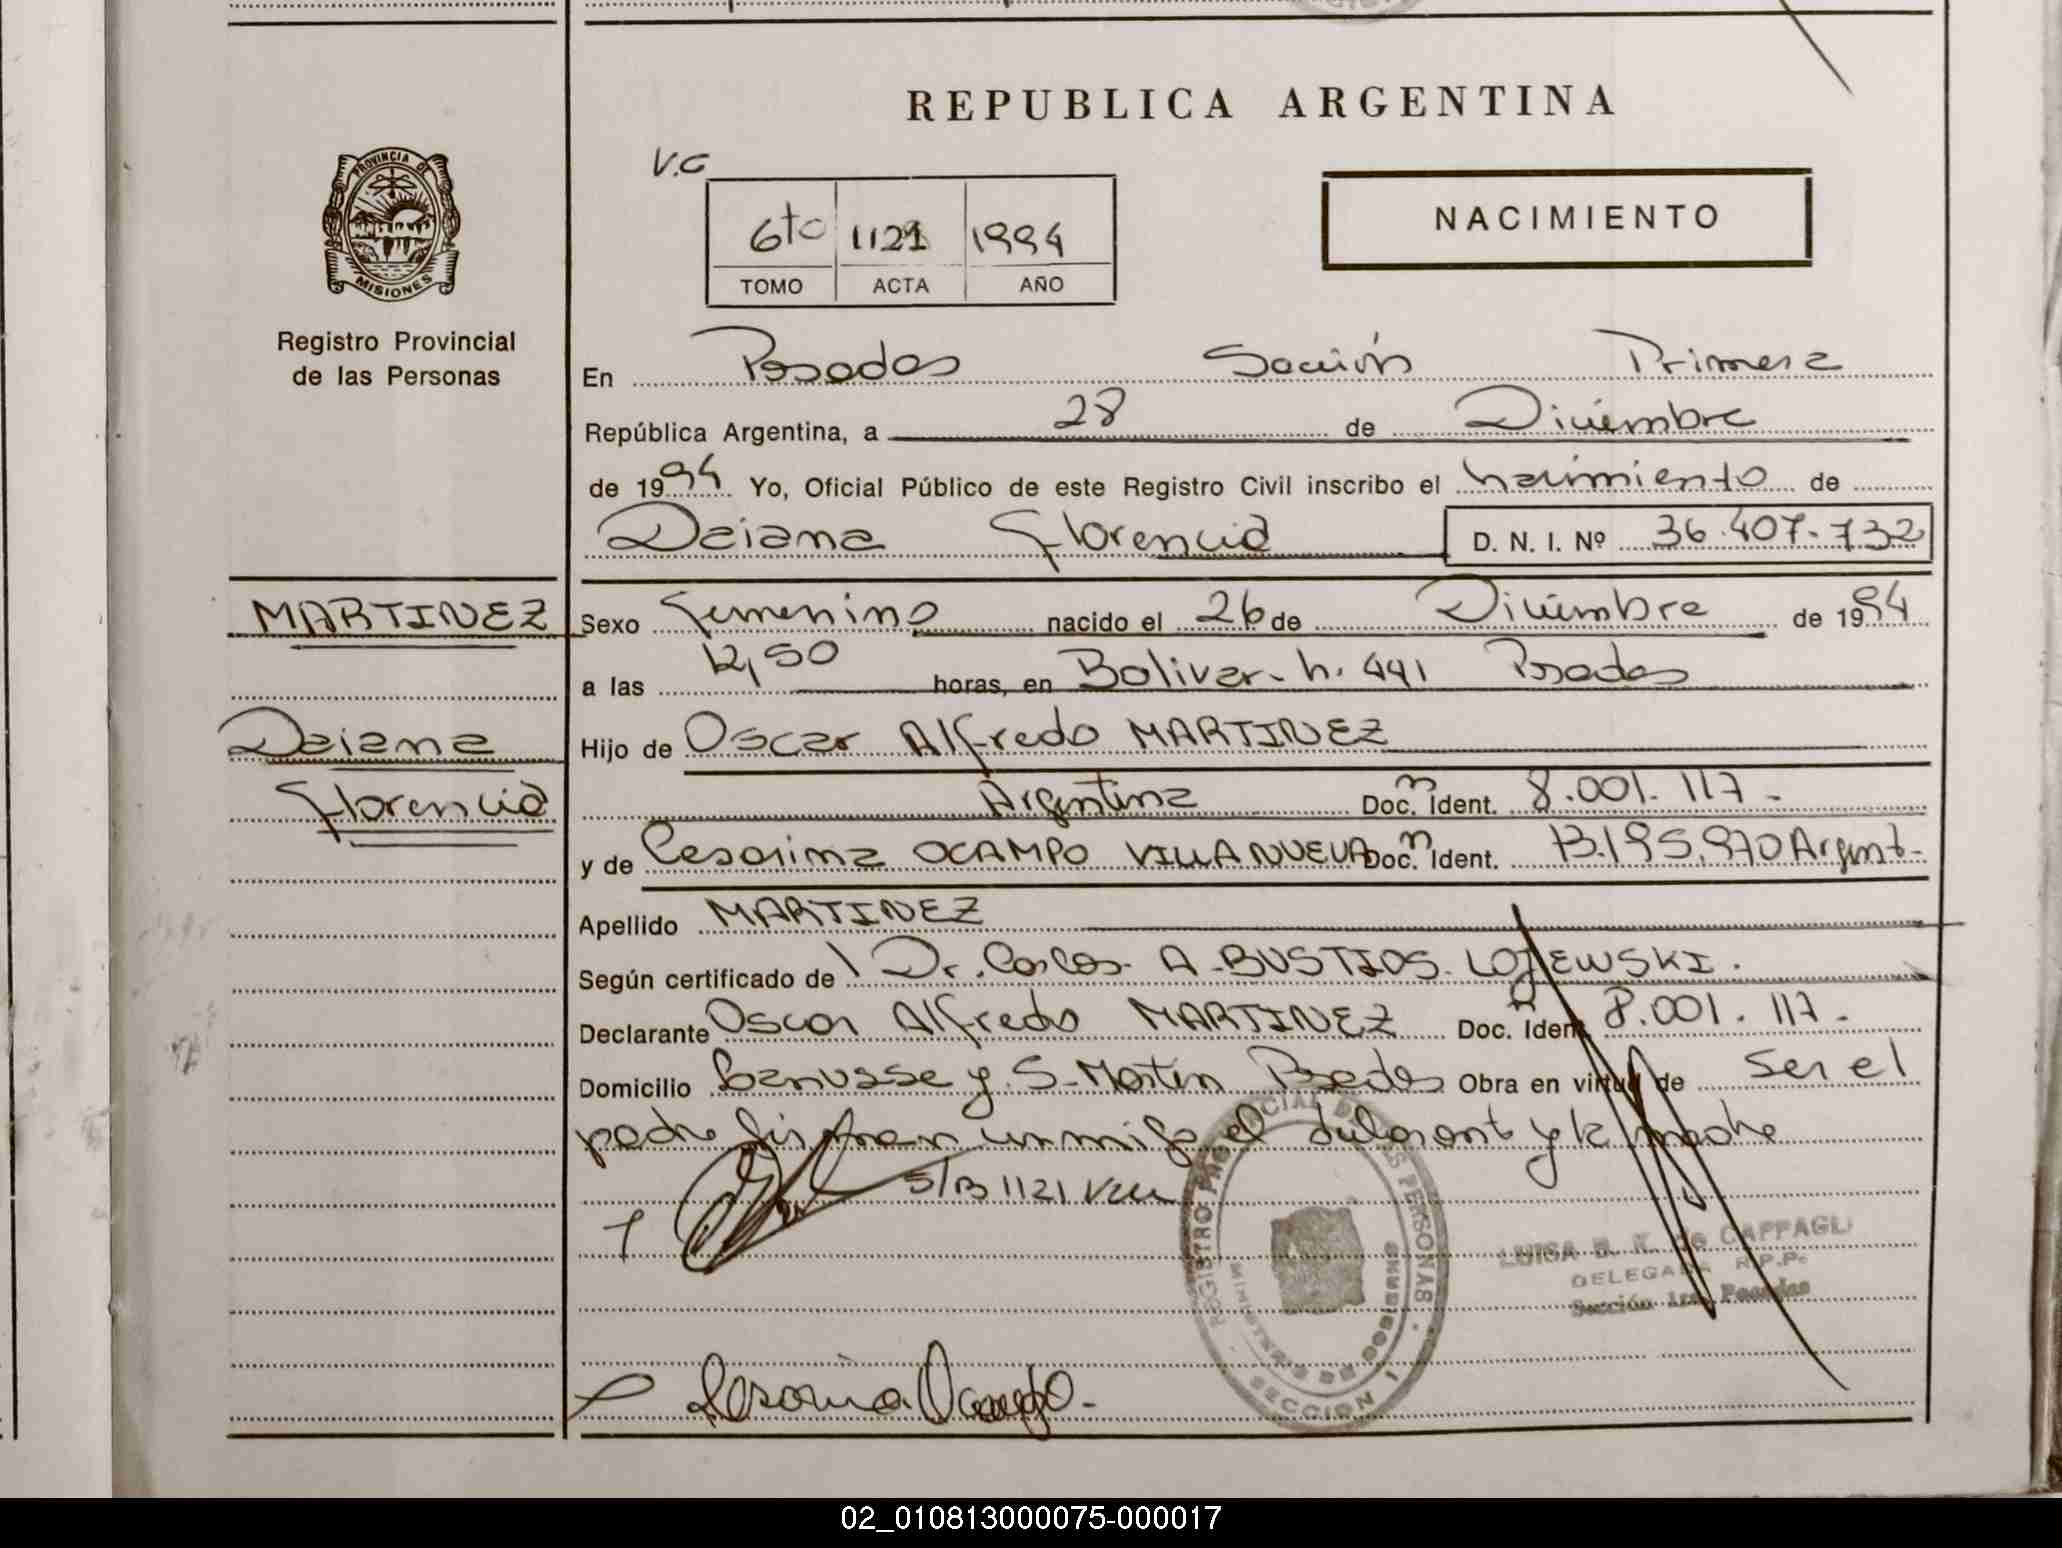 REPUBLICA ARGENTINA
PROVINCIA DE
MISIONES
Registro Provincial
de las Personas
V.C
6to 1121 1994
TOMO ACTA AÑO
NACIMIENTO
En Posadas Sección Primera
República Argentina, a 28 de Diciembre
de 1994 Yo, Oficial Público de este Registro Civil inscribo el nacimiento de
Daiana Florencia D. N. I. Nº 36.407.732
MARTINEZ
Daiana
Florencia
Sexo Femenino nacido el 26 de Diciembre de 1994
a las 12,50 horas, en Bolivar - h. 441 Posadas
Hijo de Oscar Alfredo MARTINEZ
Argentina Doc. Ident. 8.001.117-
y de Cesarina OCAMPO VILLANUEVA Doc. Ident. 13.195.970 Argent-
Apellido MARTINEZ
Según certificado de Dr. Carlos A. BUSTIOS LOJEWSKI.
Declarante Oscar Alfredo MARTINEZ Doc. Ident. 8.001.117-
Domicilio y S. Martin Posadas Obra en virtud de ser el
padre firman conmigo el y la madre
S/B 1121
REGISTRO PROVINCIAL DE LAS PERSONAS
MINISTERIO DE GOBIERNO
SECCION 1
LUISA B. K. de
DELEGADA R.P.P.
Sección 1ra. Posadas
Cesarina Ocampo.
02_010813000075-000017